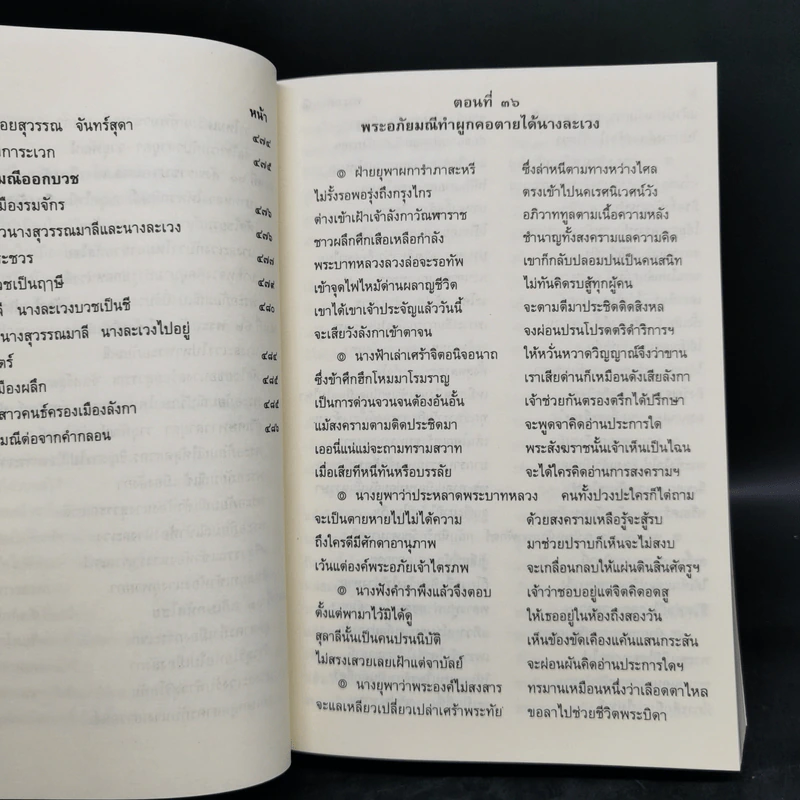 หน้า
อยสุวรรณ จันทร์สุดา ๔๗๔
การะเวก ๔๗๕
มณีออกบวช
มืองรมจักร ๔๗๖
วนางสุวรรณมาลีและนางละเวง ๔๗๖
ระชวร ๔๗๗
วชเป็นฤๅษี ๔๗๙
ลี นางละเวงบวชเป็นชี ๔๘๐
นางสุวรรณมาลี นางละเวงไปอยู่
ตร์ ๔๘๔
มืองผลึก ๔๘๕
สาวคนธ์ครองเมืองลังกา ๔๘๕
มณีต่อจากคำกลอน ๔๘๖
ตอนที่ ๓๖
พระอภัยมณีทำผูกคอตายได้นางละเวง
๏ ฝ่ายยุพาผการำภาสะหรี ซึ่งล่าหนีตามทางหว่างไศล
ไม่รั้งรอพอรุ่งถึงกรุงไกร ตรงเข้าไปนคเรศนิเวศน์วัง
ต่างเข้าเฝ้าเจ้าลังกาวัณพาราช อภิวาททูลตามเนื้อความหลัง
ชาวผลึกศึกเสือเหลือกำลัง ชำนาญทั้งสงครามแลความคิด
พระบาทหลวงลวงล่อจะรอทัพ เขาก็กลับปลอมปนเป็นคนสนิท
เข้าจุดไฟไหม้ด่านผลาญชีวิต ไม่ทันคิดรบสู้ทุกผู้คน
เขาได้เขาเจ้าประจัญแล้ววันนี้ จะตามตีมาประชิดติดสิงหล
จะเสียวังลังกาเข้าตาจน จงผ่อนปรนโปรดตริดำริการฯ
๏ นางฟังเล่าเศร้าจิตอนิจอนาถ ให้หวั่นหวาดวิญญาณ์จึงว่าขาน
ซึ่งข้าศึกฮึกโหมมาโรมราญ เราเสียด่านก็เหมือนดังเสียลังกา
เป็นการด่วนจวนจนต้องอ้นอั้น เจ้าช่วยกันตรองตรึกได้ปรึกษา
แม้สงครามตามติดประชิดมา จะพูดจาคิดอ่านประการใด
เออนี่แน่แม่จะถามทรามสวาท พระสังฆราชนั้นเจ้าเห็นเป็นไฉน
เมื่อเสียทีหนีทันหรือบรรลัย จะได้ใครคิดอ่านการสงครามฯ
๏ นางยุพาว่าประหลาดพระบาทหลวง คนทั้งปวงปะใครก็ไต่ถาม
จะเป็นตายหายไปไม่ได้ความ ด้วยสงครามเหลือรู้จะสู้รบ
ถึงใครดีมีศักดาอานุภาพ มาช่วยปราบก็เห็นจะไม่สงบ
เว้นแต่องค์พระอภัยเจ้าไตรภพ จะเกลื่อนกลบให้แผ่นดินสิ้นศัตรูฯ
๏ นางฟังคำรำพึงแล้วจึงตอบ เจ้าว่าชอบอยู่แต่จิตคิดอดสู
ตั้งแต่พามาไว้มิได้ดู ให้เธออยู่ในห้องถึงสองวัน
สุลาลีนั้นเป็นคนปรนนิบัติ เห็นข้องขัดเคืองแค้นแสนกระสัน
ไม่สรงเสวยเลยเฝ้าแต่จาบัลย์ จะผ่อนผันคิดอ่านประการใดฯ
๏ นางยุพาว่าพระองค์ไม่สงสาร ทรมานเหมือนหนึ่งว่าเลือดตาไหล
จะแลเหลียวเปลี่ยวเปล่าเศร้าพระทัย ขอลาไปช่วยชีวิตพระบิดา